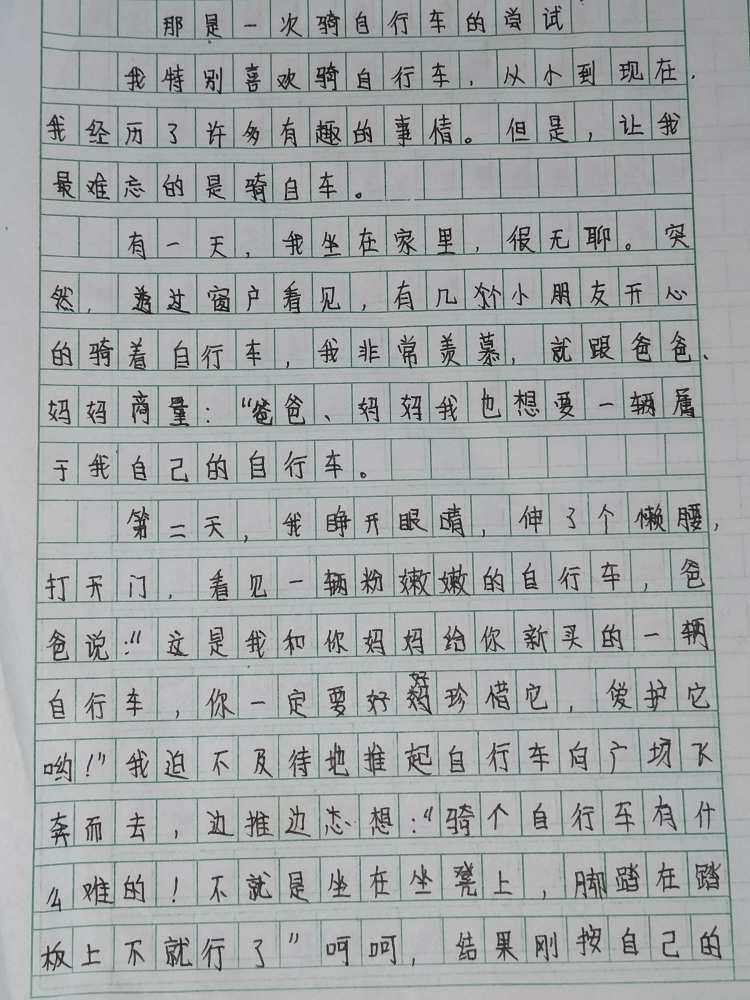 那是一次骑自行车的尝试
我特别喜欢骑自行车，从小到现在，
我经历了许多有趣的事情。但是，让我
最难忘的是骑自车。
有一天，我坐在家里，很无聊。突
然，透过窗户看见，有几个小朋友开心
的骑着自行车，我非常羡慕，就跟爸爸、
妈妈商量：“爸爸、妈妈我也想要一辆属
于我自己的自行车。
第二天，我睁开眼睛，伸了个懒腰，
打开门，看见一辆粉嫩嫩的自行车，爸
爸说：“这是我和你妈妈给你新买的一辆
自行车，你一定要好好珍惜它，爱护它
哟！”我迫不及待地推起自行车向广场飞
奔而去，边推边想：“骑个自行车有什
么难的！不就是坐在坐凳上，脚踏在踏
板上不就行了”呵呵，结果刚按自己的